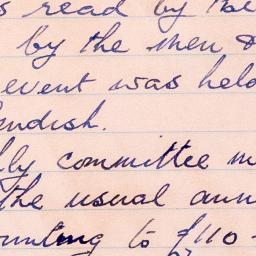 read by the
by the men &
event was held
endish.
ly committee m
the usual ann
unting to £110-